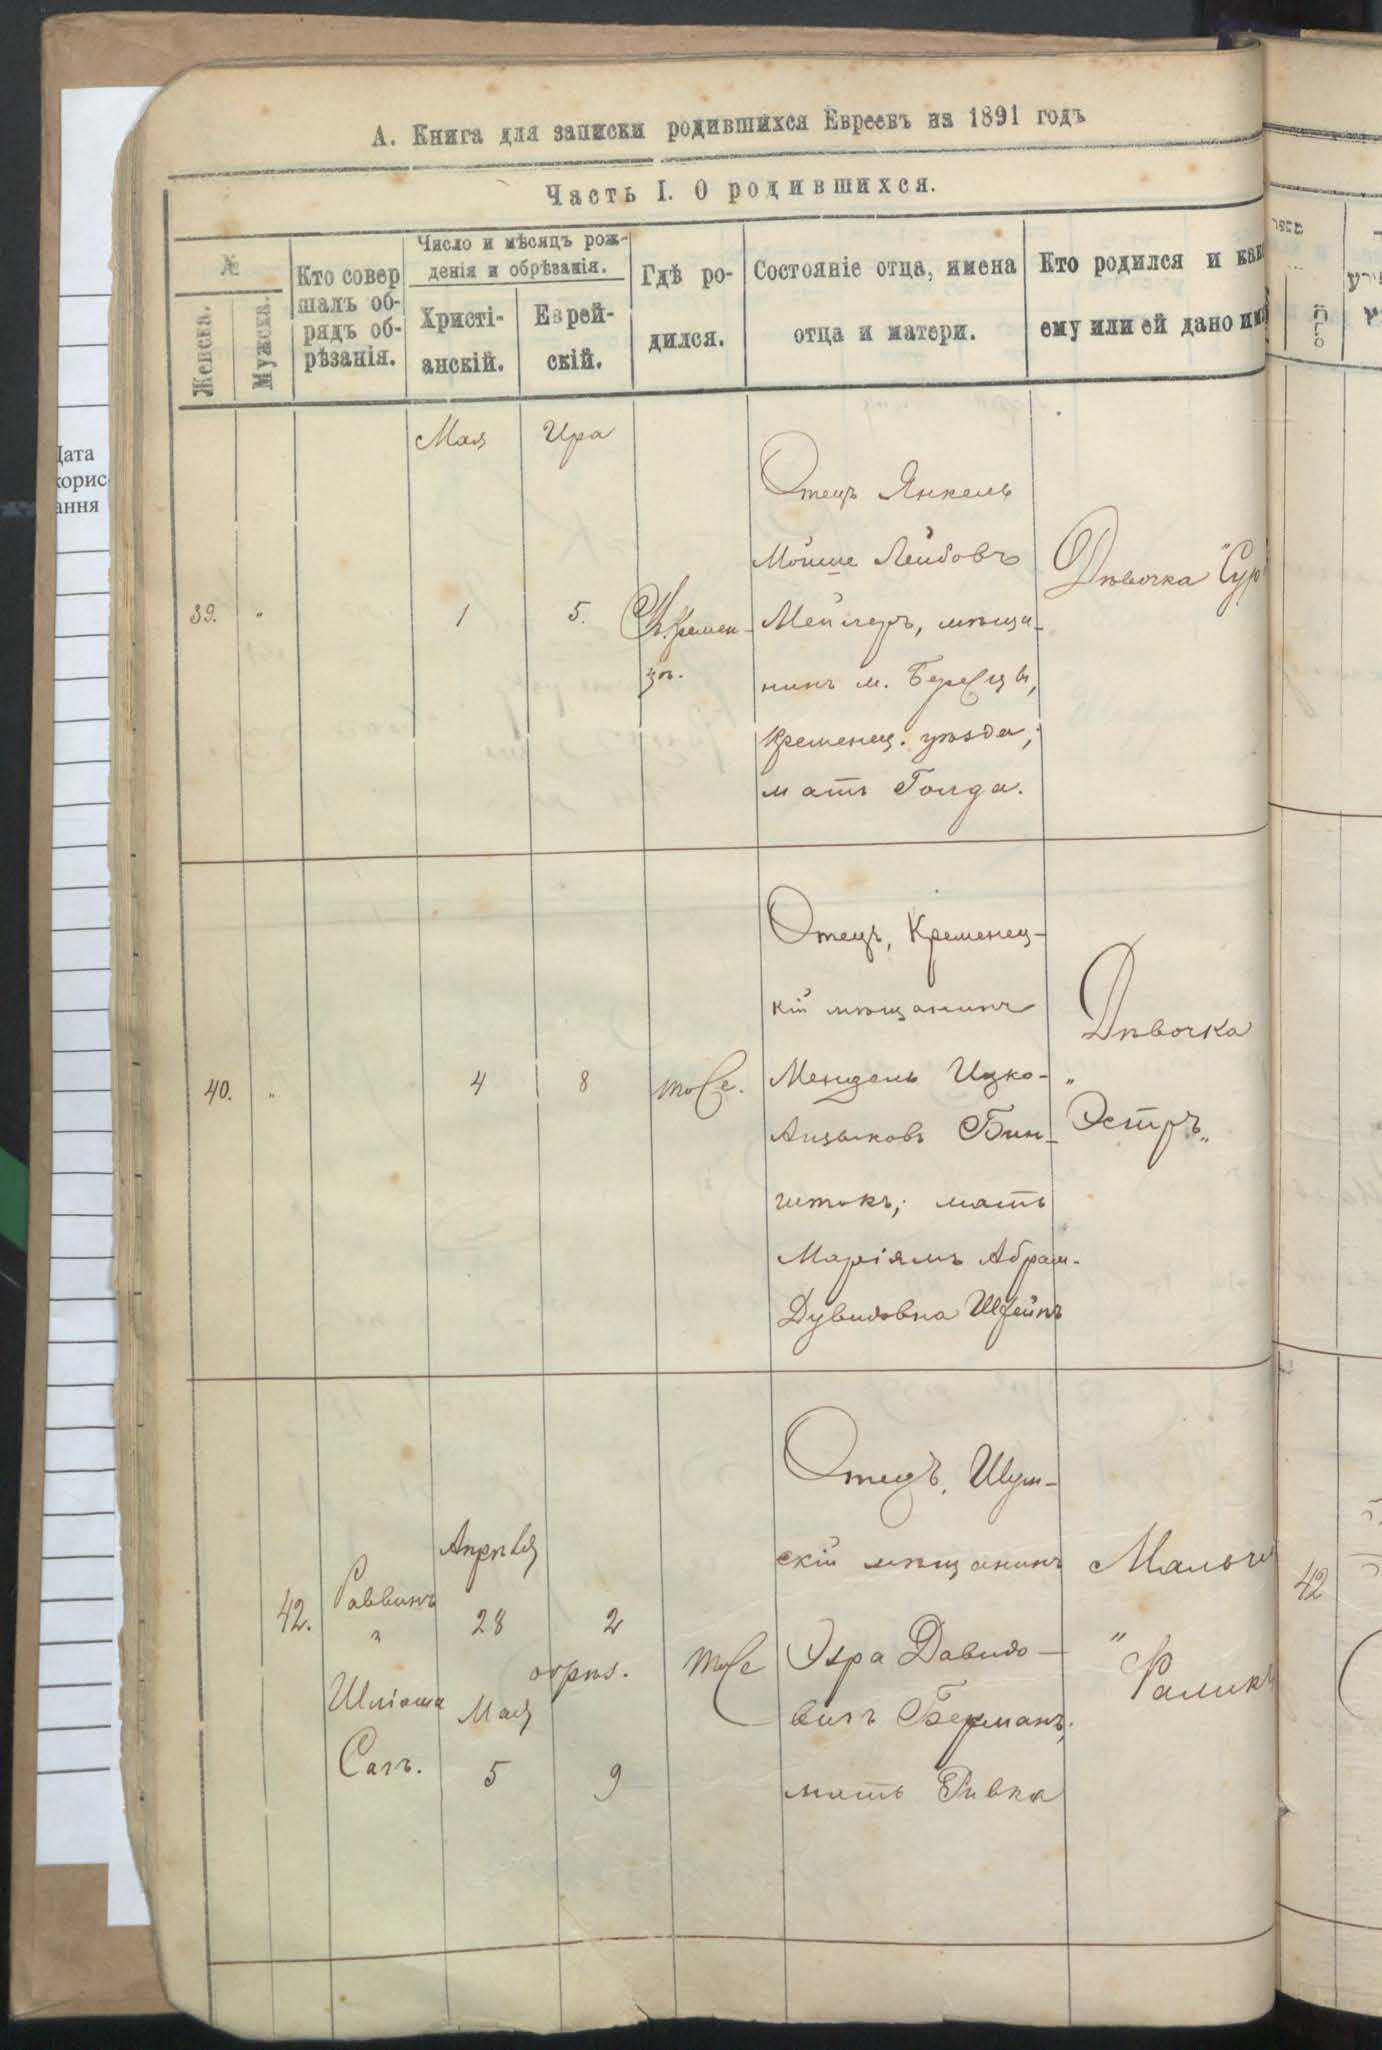 А. Книга для записки родившихся Евреевъ на 1891 годъ
Часть I. О родившихся.
№
Женска.
Мужска.
Кто совер
шалъ об-
рядъ об-
рѣзанія.
Число и мѣсяцъ рож-
денія и обрѣзанія.
Христі-
анскій.
Еврей-
скій.
Гдѣ ро-
дился.
Состояніе отца, имена
отца и матери.
Кто родился и как
ему или ей дано им
Дата
корис-
ання
Мая
Ира
39.
"
1
5.
Кремен-
цѣ.
Отецъ Янкель
Мойше Лейбовъ
Мейлеръ, мѣща-
нинъ м. Бережцы,
Кременец. уѣзда;
мать Голда.
Дѣвочка "Сур
40.
"
4
8
тоже.
Отецъ, Кременец-
кій мѣщанинъ
Мендель Ицко-
Айзыковъ Бин-
штокъ; мать
Маріямъ Абрам-
Дувидовна Штейнъ
Дѣвочка
"
Эстръ"
42.
Раввинъ
"
Шліома
Апрѣля
28
2
обрѣз.
Мая
5
9
тоже
Отецъ, Шум-
скій мѣщанинъ
Эзра Давидо-
вичъ Берманъ;
мать Ривка
Мальчи
"
42